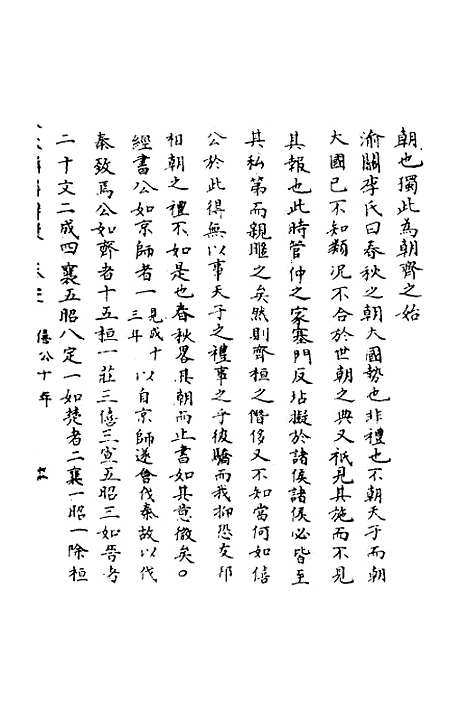 朝也獨此為朝齊之始
渝關李氏曰春秋之朝大國勢也非禮也不朝天子而朝
大國已不知類況不合於世朝之典又祇見其施而不見
其報也此時管仲之家塞門反坫擬於諸侯諸侯必皆至
其私第而親匯之矣然則齊桓之僭侈又不知當何如僖
公於此得無以事天子之禮事之乎彼驕而我抑恐友邦
相朝之禮不如是也春秋畧其朝而止書如其意微矣。
經書公如京師者一見成十三年以自京師遂會伐秦故以伐
秦致焉公如齊者十五桓一莊三僖三宣五昭三如晉者
二十文二成四襄五昭八定一如楚者二襄一昭一除桓
僖公十年